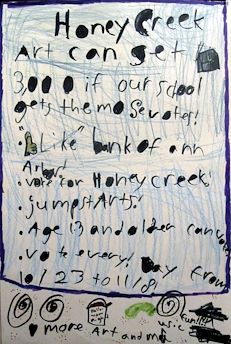 Honey Creek
Art can get
3,000 if our school
gets the mose votes!
"Like" bank of ann
Arbor!
• vote for Honeycreek!
• jumpstArts!
• Age 13 and older can vote
• vote every! Day from
10/23 to 11/8!
more Art and music
fun!!!